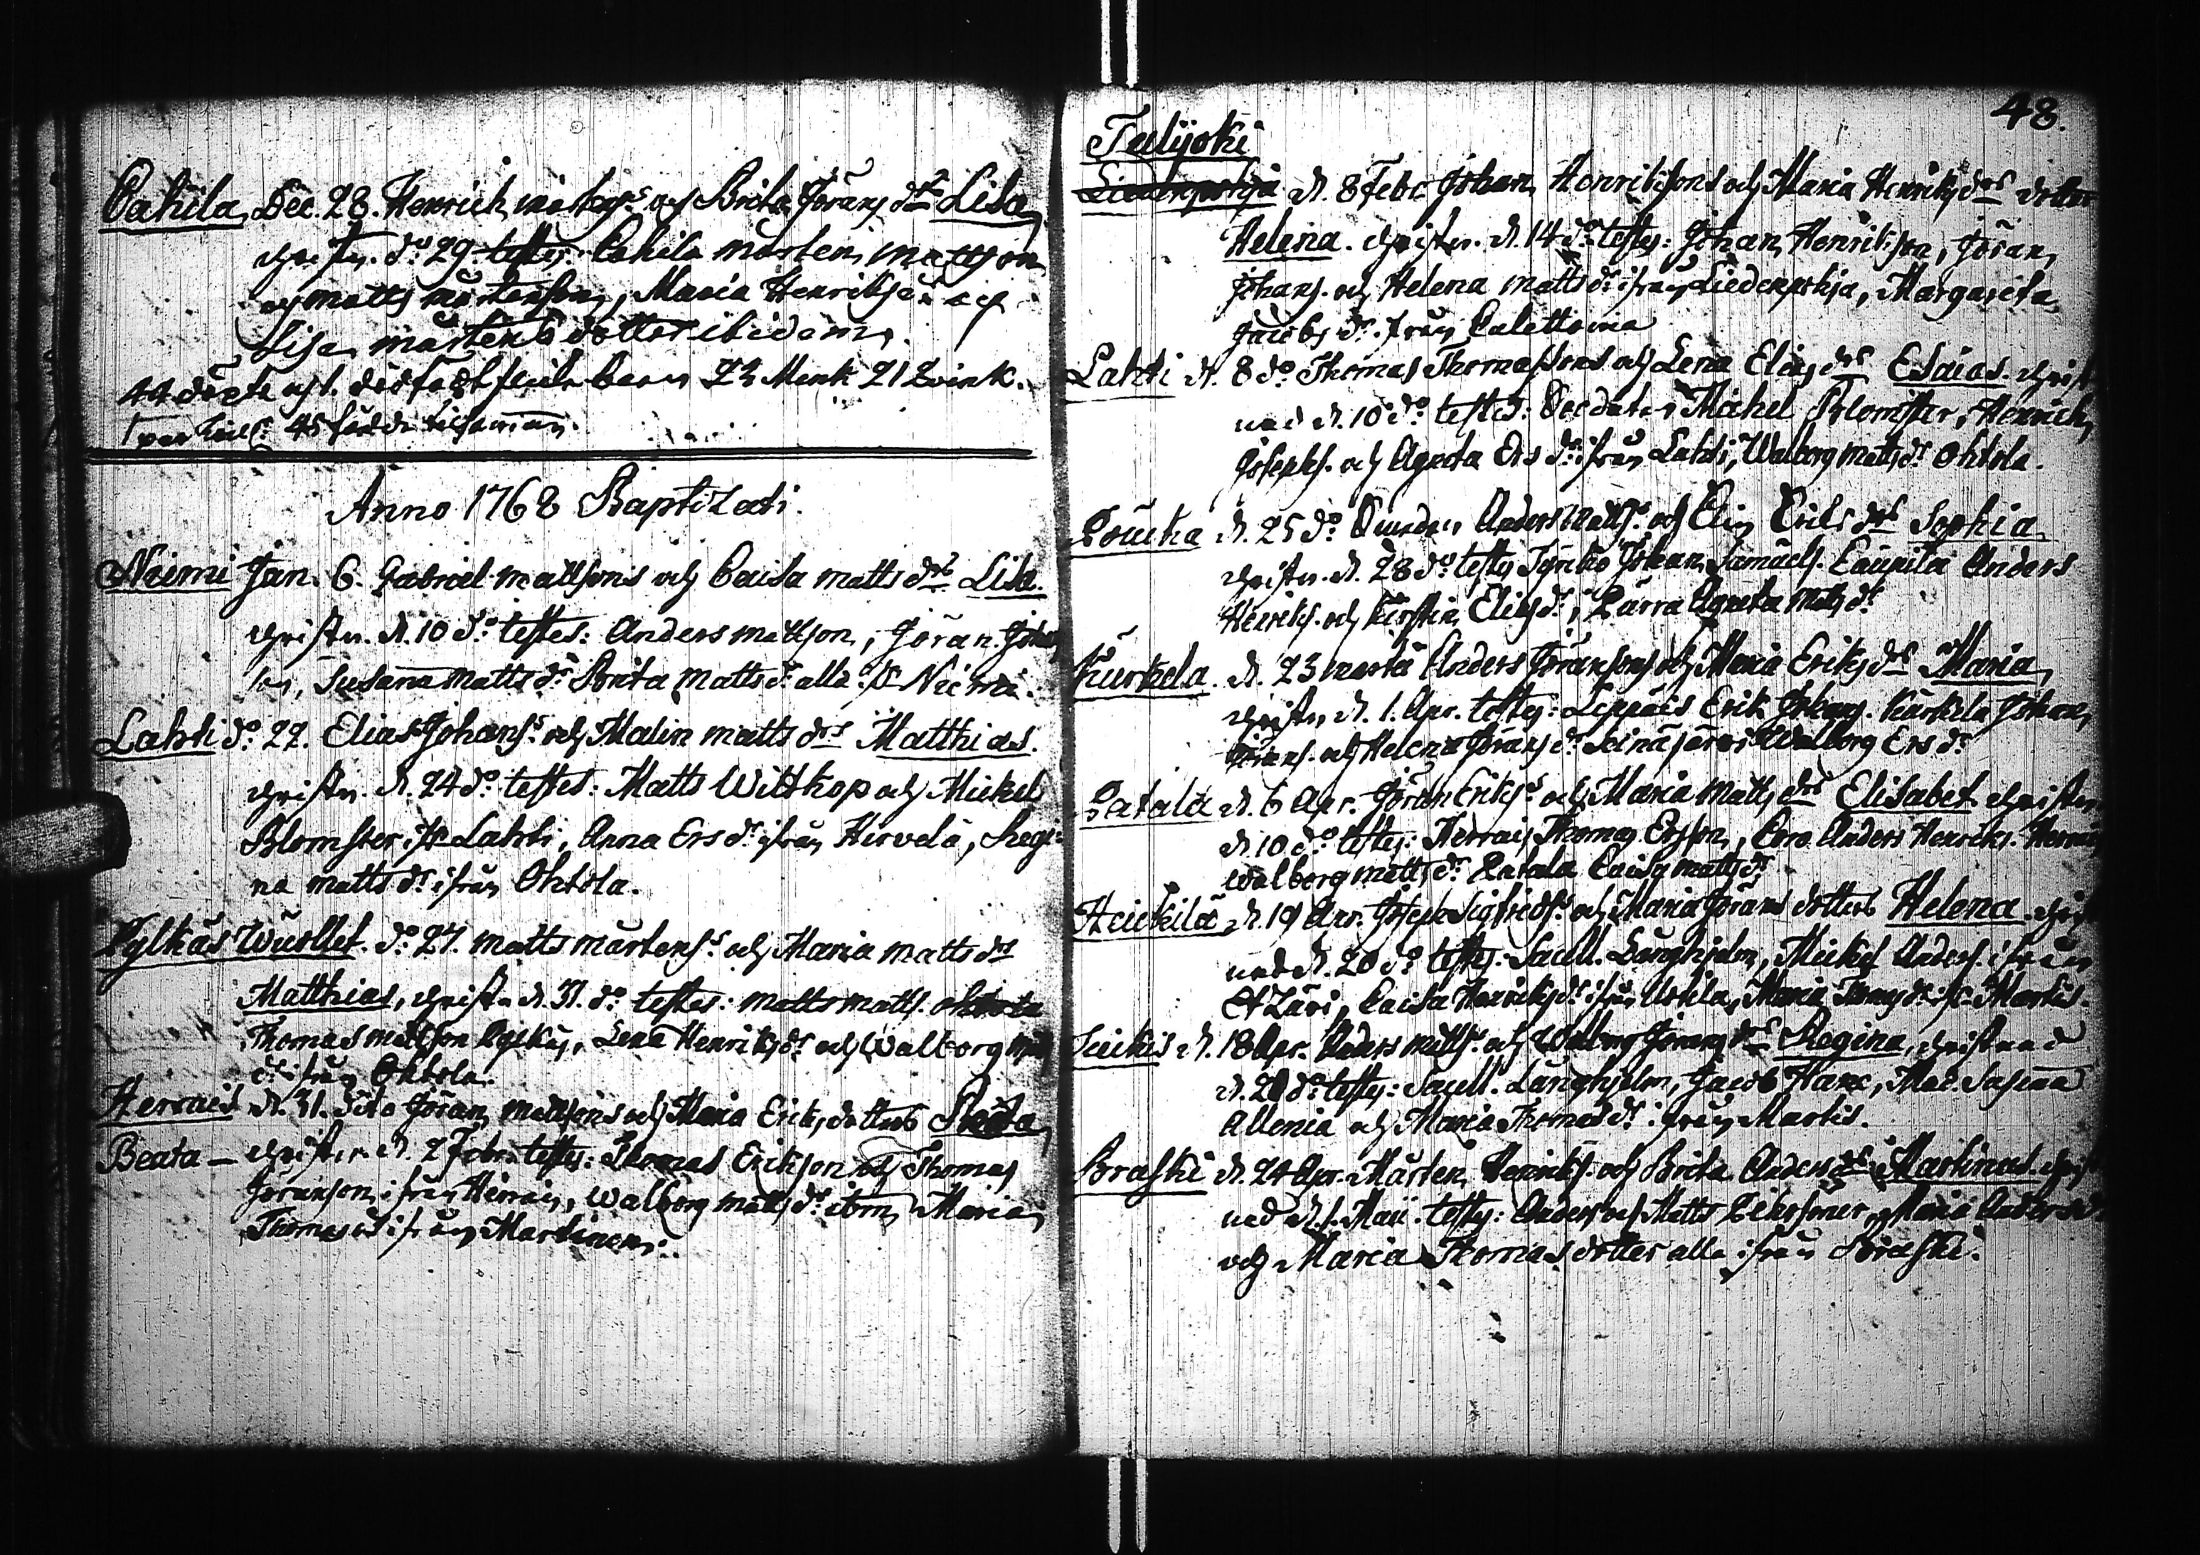 Cahila Dec. 28. Henrich och Brita Jörans dr Lisa
christn. do 29 testes: Cahila mårten mattson
och matts mårtenson, Maria Henriksdr och
Lisa mårtens dotter ibidem.
44 döpte och 1. barn 23 Mank 21 Qvink.
45 födde tilsamman.
Anno 1768 Baptizati.
Neimi Jan. 6. Gabriel mattsons och Caisa matts drs Lisa.
christn. d. 10 do testes: Anders mattson, Jöran Johan
son, Susanna matts dr Brita matts dr alla ifr Niemi.
Lahti do 22. Elias Johanss och Malin matts drs Matthias.
christn. d. 24 do testes: Matts Wittkop och Mickel
Blomster ifr Lahti, Anna Ers dr ifrån Hirvelä, Regi-
na matts dr ifrån Ohtola.
Pylkäs Wuollet. do 27. matts mårtenss och Maria matts drs
Matthias, christn d. 31. do testes: matts matts. ohtola
Thomas mattson Pylkäs, Lena Henriks dr och Walborg
dr ifrån Ohtola.
Herrais d. 31. dito Jöran mattsons och Maria Eriks dotters
Beata - christn. d. 2 Febr. testes: Thomas Erikson och Thomas
Jöranson ifrån Herrais, Walborg matts dr Maria
Thomas dr ifrån Martinen.
48.
Tulijoki
Liedenpohja d. 8 Febr. Johan Henriksons och Maria Henriks drs dotter
Helena. christn. d. 14 do testes: Johan Henrikson, Jöran
Johans. och Helena matts dr ifrån Liedenpohja, Margareta
Jacobs dr ifrån
Lahti d. 8 do Thomas Thomassons och Lena Elias drs Esaias. christ
nad d. 10 do testes: Soldaten Mickel Blomster, Henrich
Josephs. och Agneta Ers dr ifrån Lahti, Walborg matts dr Ohtola.
Pouka d. 25 do Anders matts. och Elin Eriks drs Sophia.
christn. d. 28 do testes Johan Samuels. Caupila Anders
Henriks. och Kirstin Elias dr, Parra Agneta Matts dr
Kurkela d. 23 martii Anders Jöransons och Maria Eriks drs Maria
christn. d. 1. Apr. testes: Erik Johans. Kurkela Johan
Jörans. och Helena Jörans dr Seinäjärvi Walborg Ers dr
Patala d. 6 Apr. Jöran Eriks. och Maria matts drs Elisabet christn.
d. 10 do testes: Herrais Thomas Ersson, Anders Henriks.
Walborg matts dr Patala Caisa matts dr
Heickilä d. 19 Apr. Joseph Sigfrids. och Maria Jörans dotters Helena christ
nad d. 20 do testes: Sacell. Långhjelm, Mickel Anders. ifrån
Caisa Henriks dr ifrån Uskila, Maria Thomas dr ifr Martis.
d. 18 Apr. Anders matts. och Walborg Jörans drs Regina, christnad
d. 20 do testes: Sacell. Långhjelm, Jacob
Allenia och Maria Thomas dr ifrån Martis.
Braski d. 24 Apr. Mårten Henriks. och Brita Anders drs Martinus. christ
nad d. 1. Maii. testes: Anders och Matts Maria Anders dr
och Maria Thomas dotter alla ifrån Braski.